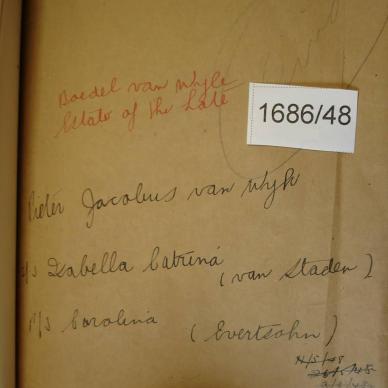 Boedel van Wyle
Estate of the Late
1686/48
Pieter Jacobus van Wyk
n/s Isabella Catrina (van Staden)
n/s Carolina (Evertsohn)